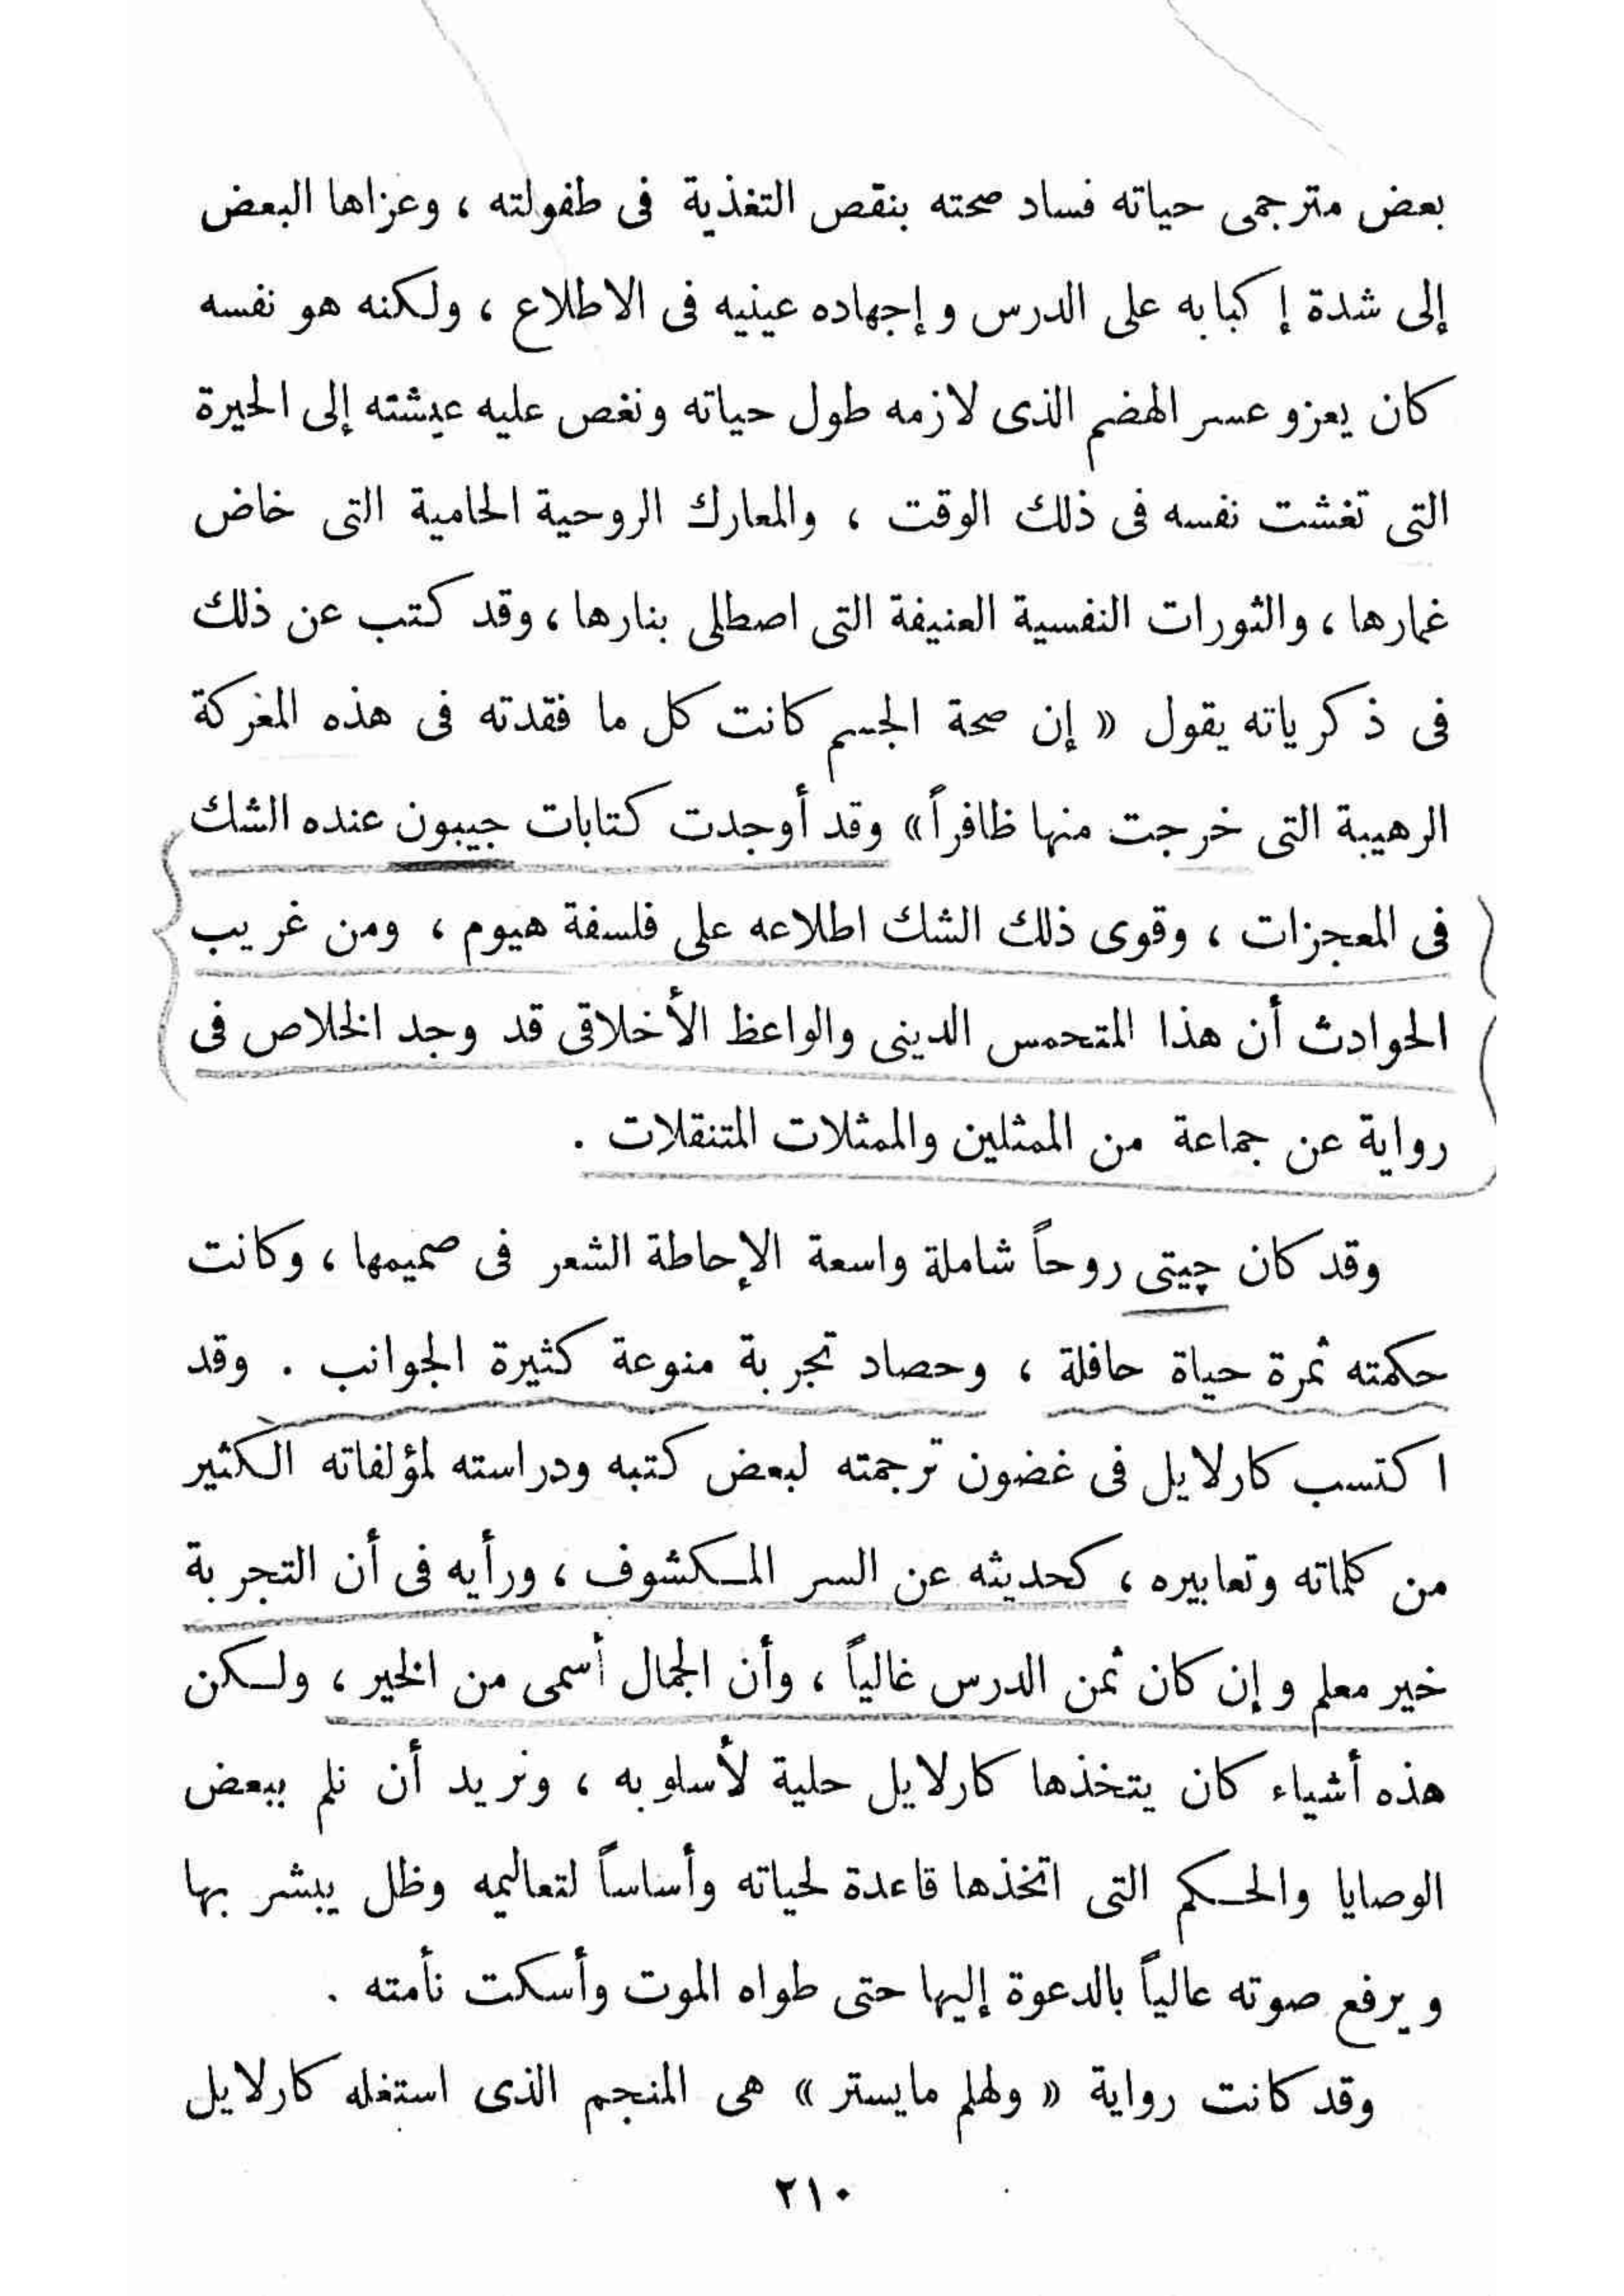 بعض مترجمى حياته فساد صحته بنقص التغذية فى طفولته ، وعزاها البعض
إلى شدة إكبابه على الدرس وإجهاده عينيه فى الاطلاع ، ولكنه هو نفسه
كان يعزو عسر الهضم الذى لازمه طول حياته ونغص عليه عيشته إلى الحيرة
التى تغشت نفسه فى ذلك الوقت ، والمعارك الروحية الحامية التى خاض
غمارها ، والثورات النفسية العنيفة التى اصطلى بنارها ، وقد كتب عن ذلك
فى ذكرياته يقول « إن صحة الجسم كانت كل ما فقدته فى هذه المغركة
الرهيبة التى خرجت منها ظافراً » وقد أوجدت كتابات جيبون عنده الشك
فى المعجزات ، وقوى ذلك الشك اطلاعه على فلسفة هيوم ، ومن غريب
الحوادث أن هذا المتحمس الدينى والواعظ الأخلاقى قد وجد الخلاص فى
رواية عن جماعة من الممثلين والممثلات المتنقلات .
وقد كان چيتى روحاً شاملة واسعة الإحاطة الشعر فى صميمها ، وكانت
حكمته ثمرة حياة حافلة ، وحصاد تجربة منوعة كثيرة الجوانب . وقد
اكتسب كارلايل فى غضون ترجمته لبعض كتبه ودراسته لمؤلفاته الكثير
من كلماته وتعابيره ، كحديثه عن السر المكشوف ، ورأيه فى أن التجربة
خير معلم وإن كان ثمن الدرس غالياً ، وأن الجمال أسمى من الخير ، ولكن
هذه أشياء كان يتخذها كارلايل حلية لأسلوبه ، ونريد أن نلم ببعض
الوصايا والحكم التى اتخذها قاعدة لحياته وأساساً لتعاليمه وظل يبشر بها
ويرفع صوته عالياً بالدعوة إليها حتى طواه الموت وأسكت نأمته .
وقد كانت رواية « ولهلم مايستر » هى المنجم الذى استغله كارلايل
٢١٠